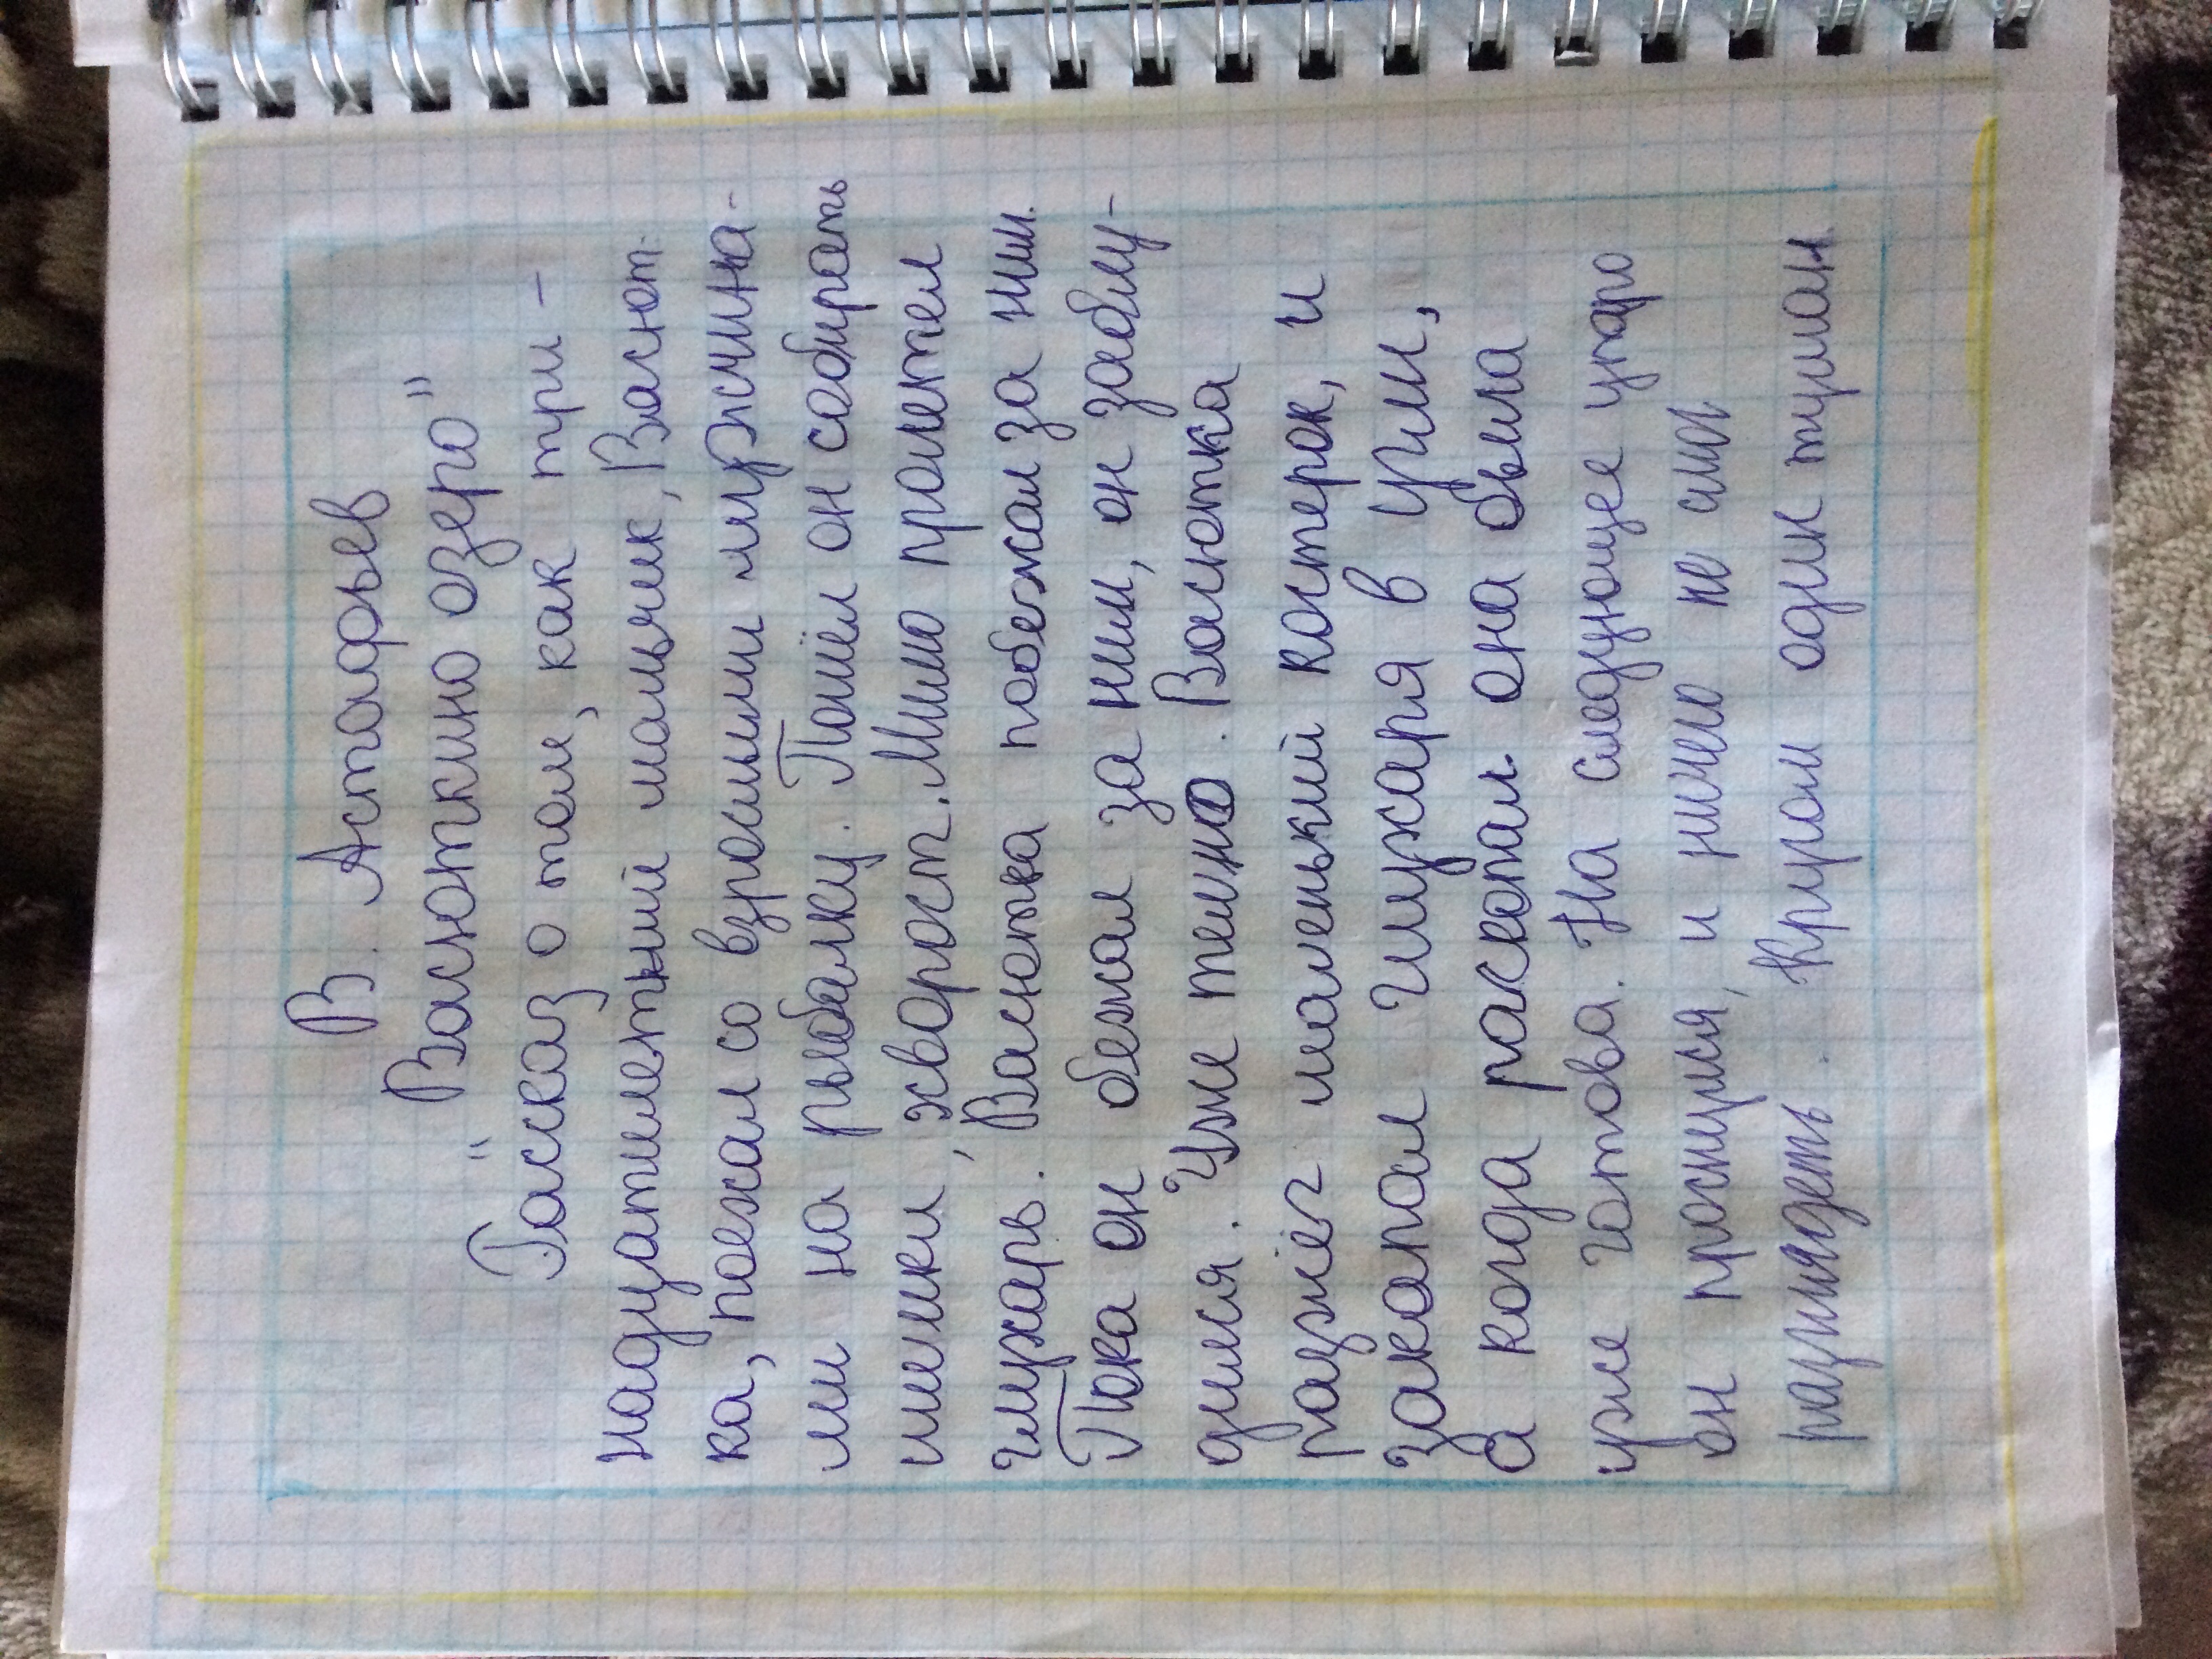 В. Астафьев
„Васюткино озеро”
Рассказ о том, как три-
надцатилетний мальчик, Васют-
ка, поехал со взрослыми мужчина-
ми на рыбалку. Пошёл он собирать
шишки, хворост. Мимо пролетел
глухарь. Васютка побежал за ним.
Пока он бежал за ним, он заблу-
дился. Уже темно. Васютка
разжёг маленький костерок, и
закапал глухаря в угли,
а когда раскопал она была
уже готова. На следующее утро
он проснулся, и ничего не смог
разглядеть. Кругом один туман.